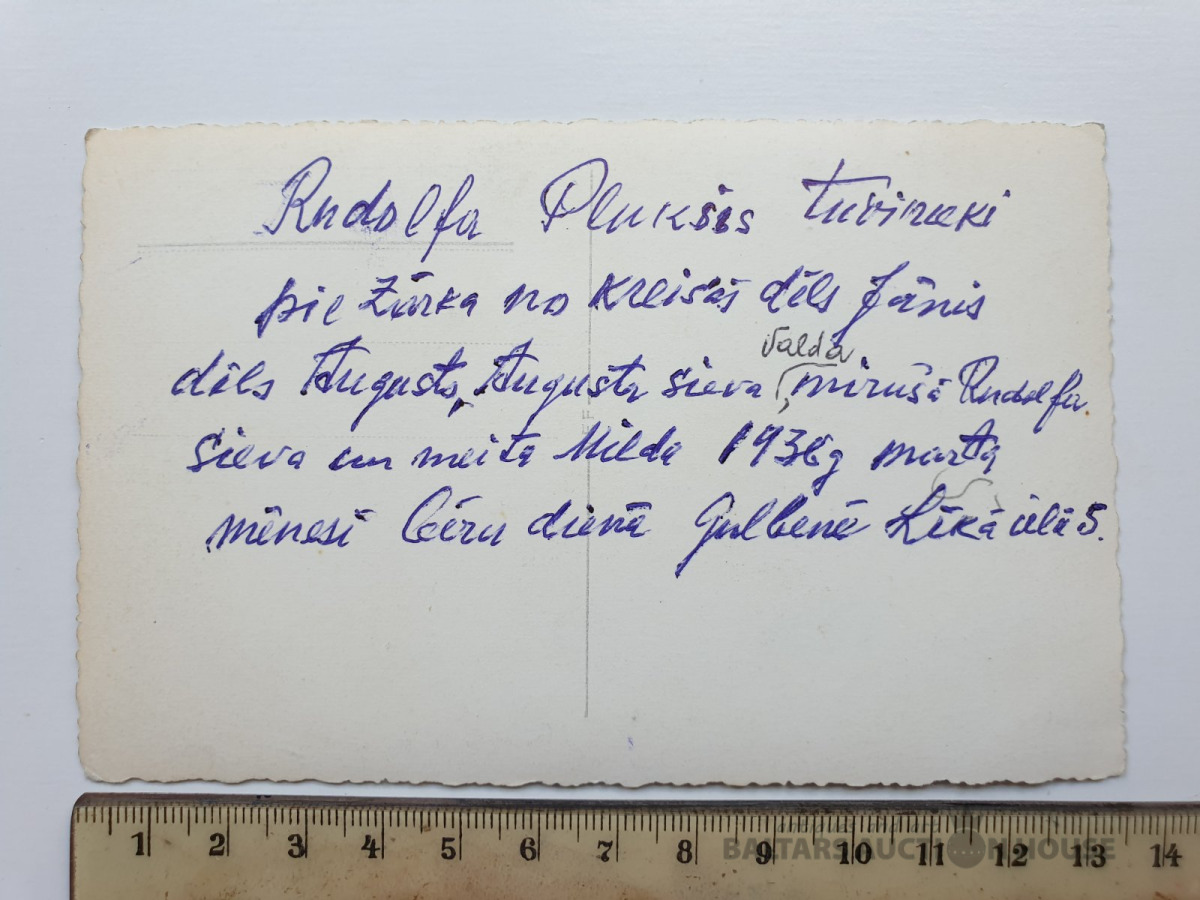 Rudolfa Plukšis tuvinieki
pie Zārka no kreisās dēls Jānis
Valda
dēls Augusts, Augusta sieva, mirušā Rudolfa
sieva un meita Milda 1938g marta
mēnesī bēru dienā Gulbenē Līkā ielā 5.
1 2 3 4 5 6 7 8 9 10 11 12 13 14
BALTARS AUCTION HOUSE